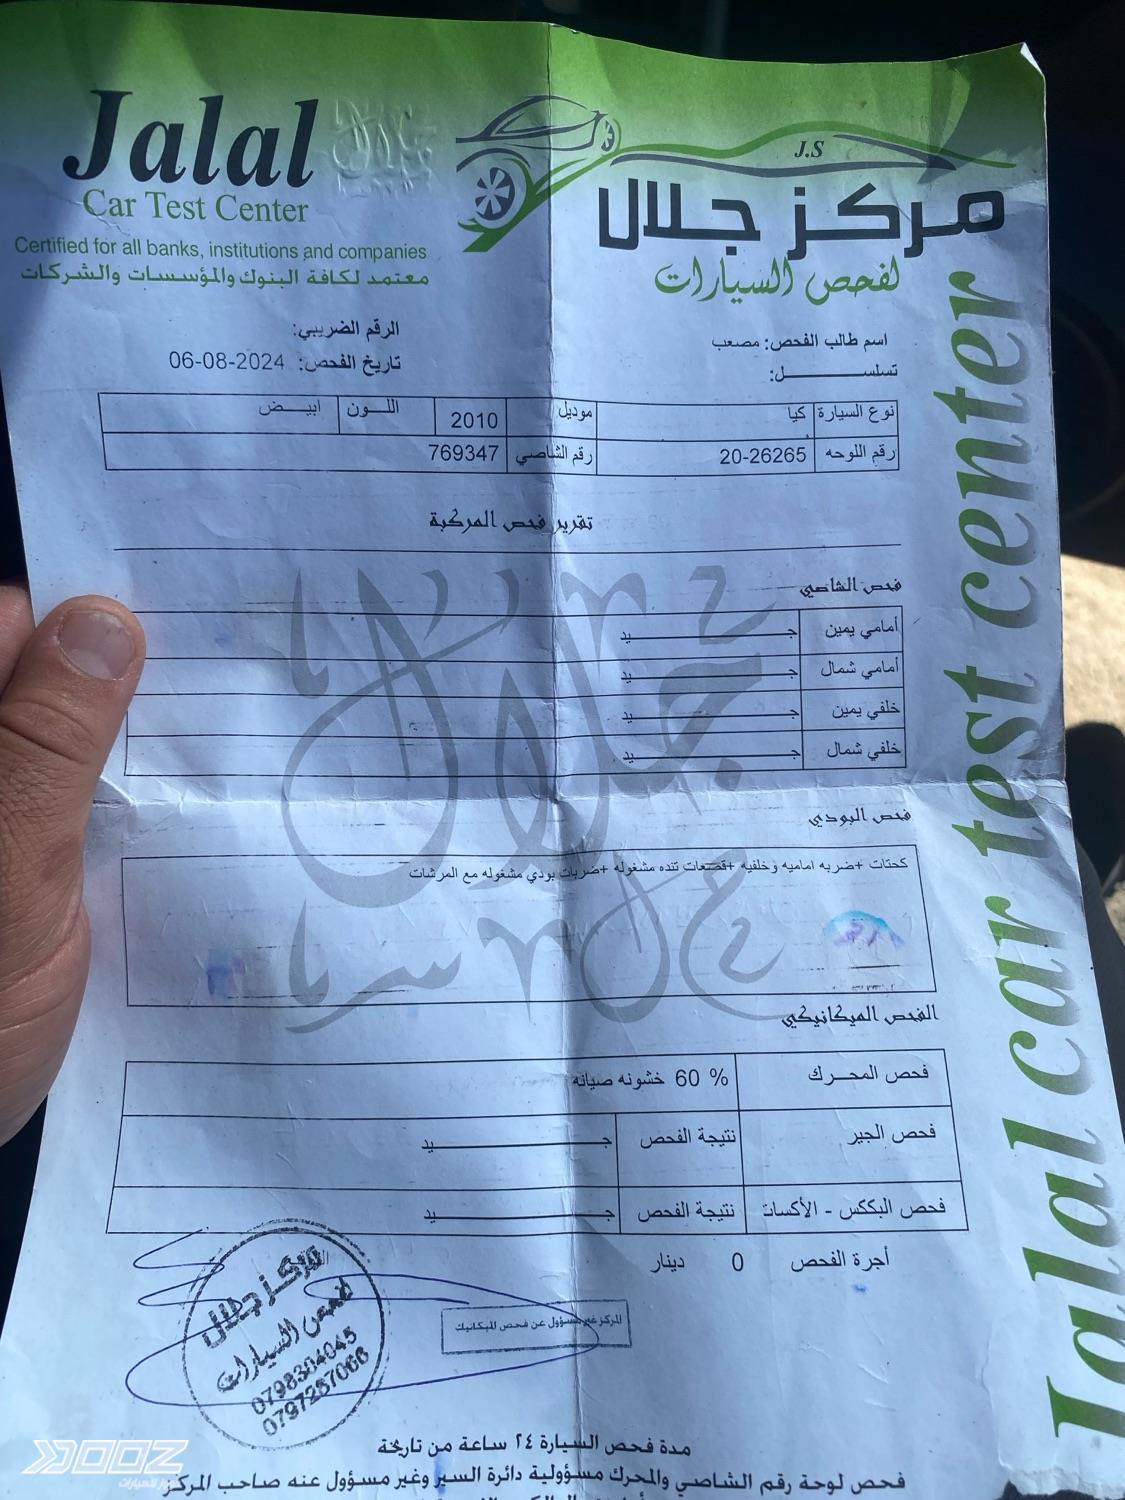 Jalal
Car Test Center
Certified for all banks, institutions and companies
معتمد لكافة البنوك والمؤسسات والشركات
J.S
مركز جلال
لفحص السيارات
الرقم الضريبي:
اسم طالب الفحص: مصعب
تاريخ الفحص: 06-08-2024
تسلسل:
نوع السيارة كيا موديل 2010 اللون ابيض
رقم اللوحه 20-26265 رقم الشاصي 769347
تقرير فحص المركبة
فحص الشاصي
أمامي يمين جيد
أمامي شمال جيد
خلفي يمين جيد
خلفي شمال جيد
فحص البودي
كحتات +ضربه اماميه وخلفيه +قصعات تنده مشغوله +ضربات بودي مشغوله مع المرشات
الفحص الميكانيكي
فحص المحرك 60 % خشونه صيانه
فحص الجير نتيجة الفحص جيد
فحص البككس - الأكسات نتيجة الفحص جيد
أجرة الفحص 0 دينار
المركز غير مسؤول عن فحص الميكانيك
مركز جلال
لفحص السيارات
0798304045
0797287066
مدة فحص السيارة ٢٤ ساعة من تاريخة
فحص لوحة رقم الشاصي والمحرك مسؤولية دائرة السير وغير مسؤول عنه صاحب المركز
Jalal car test center
جلال